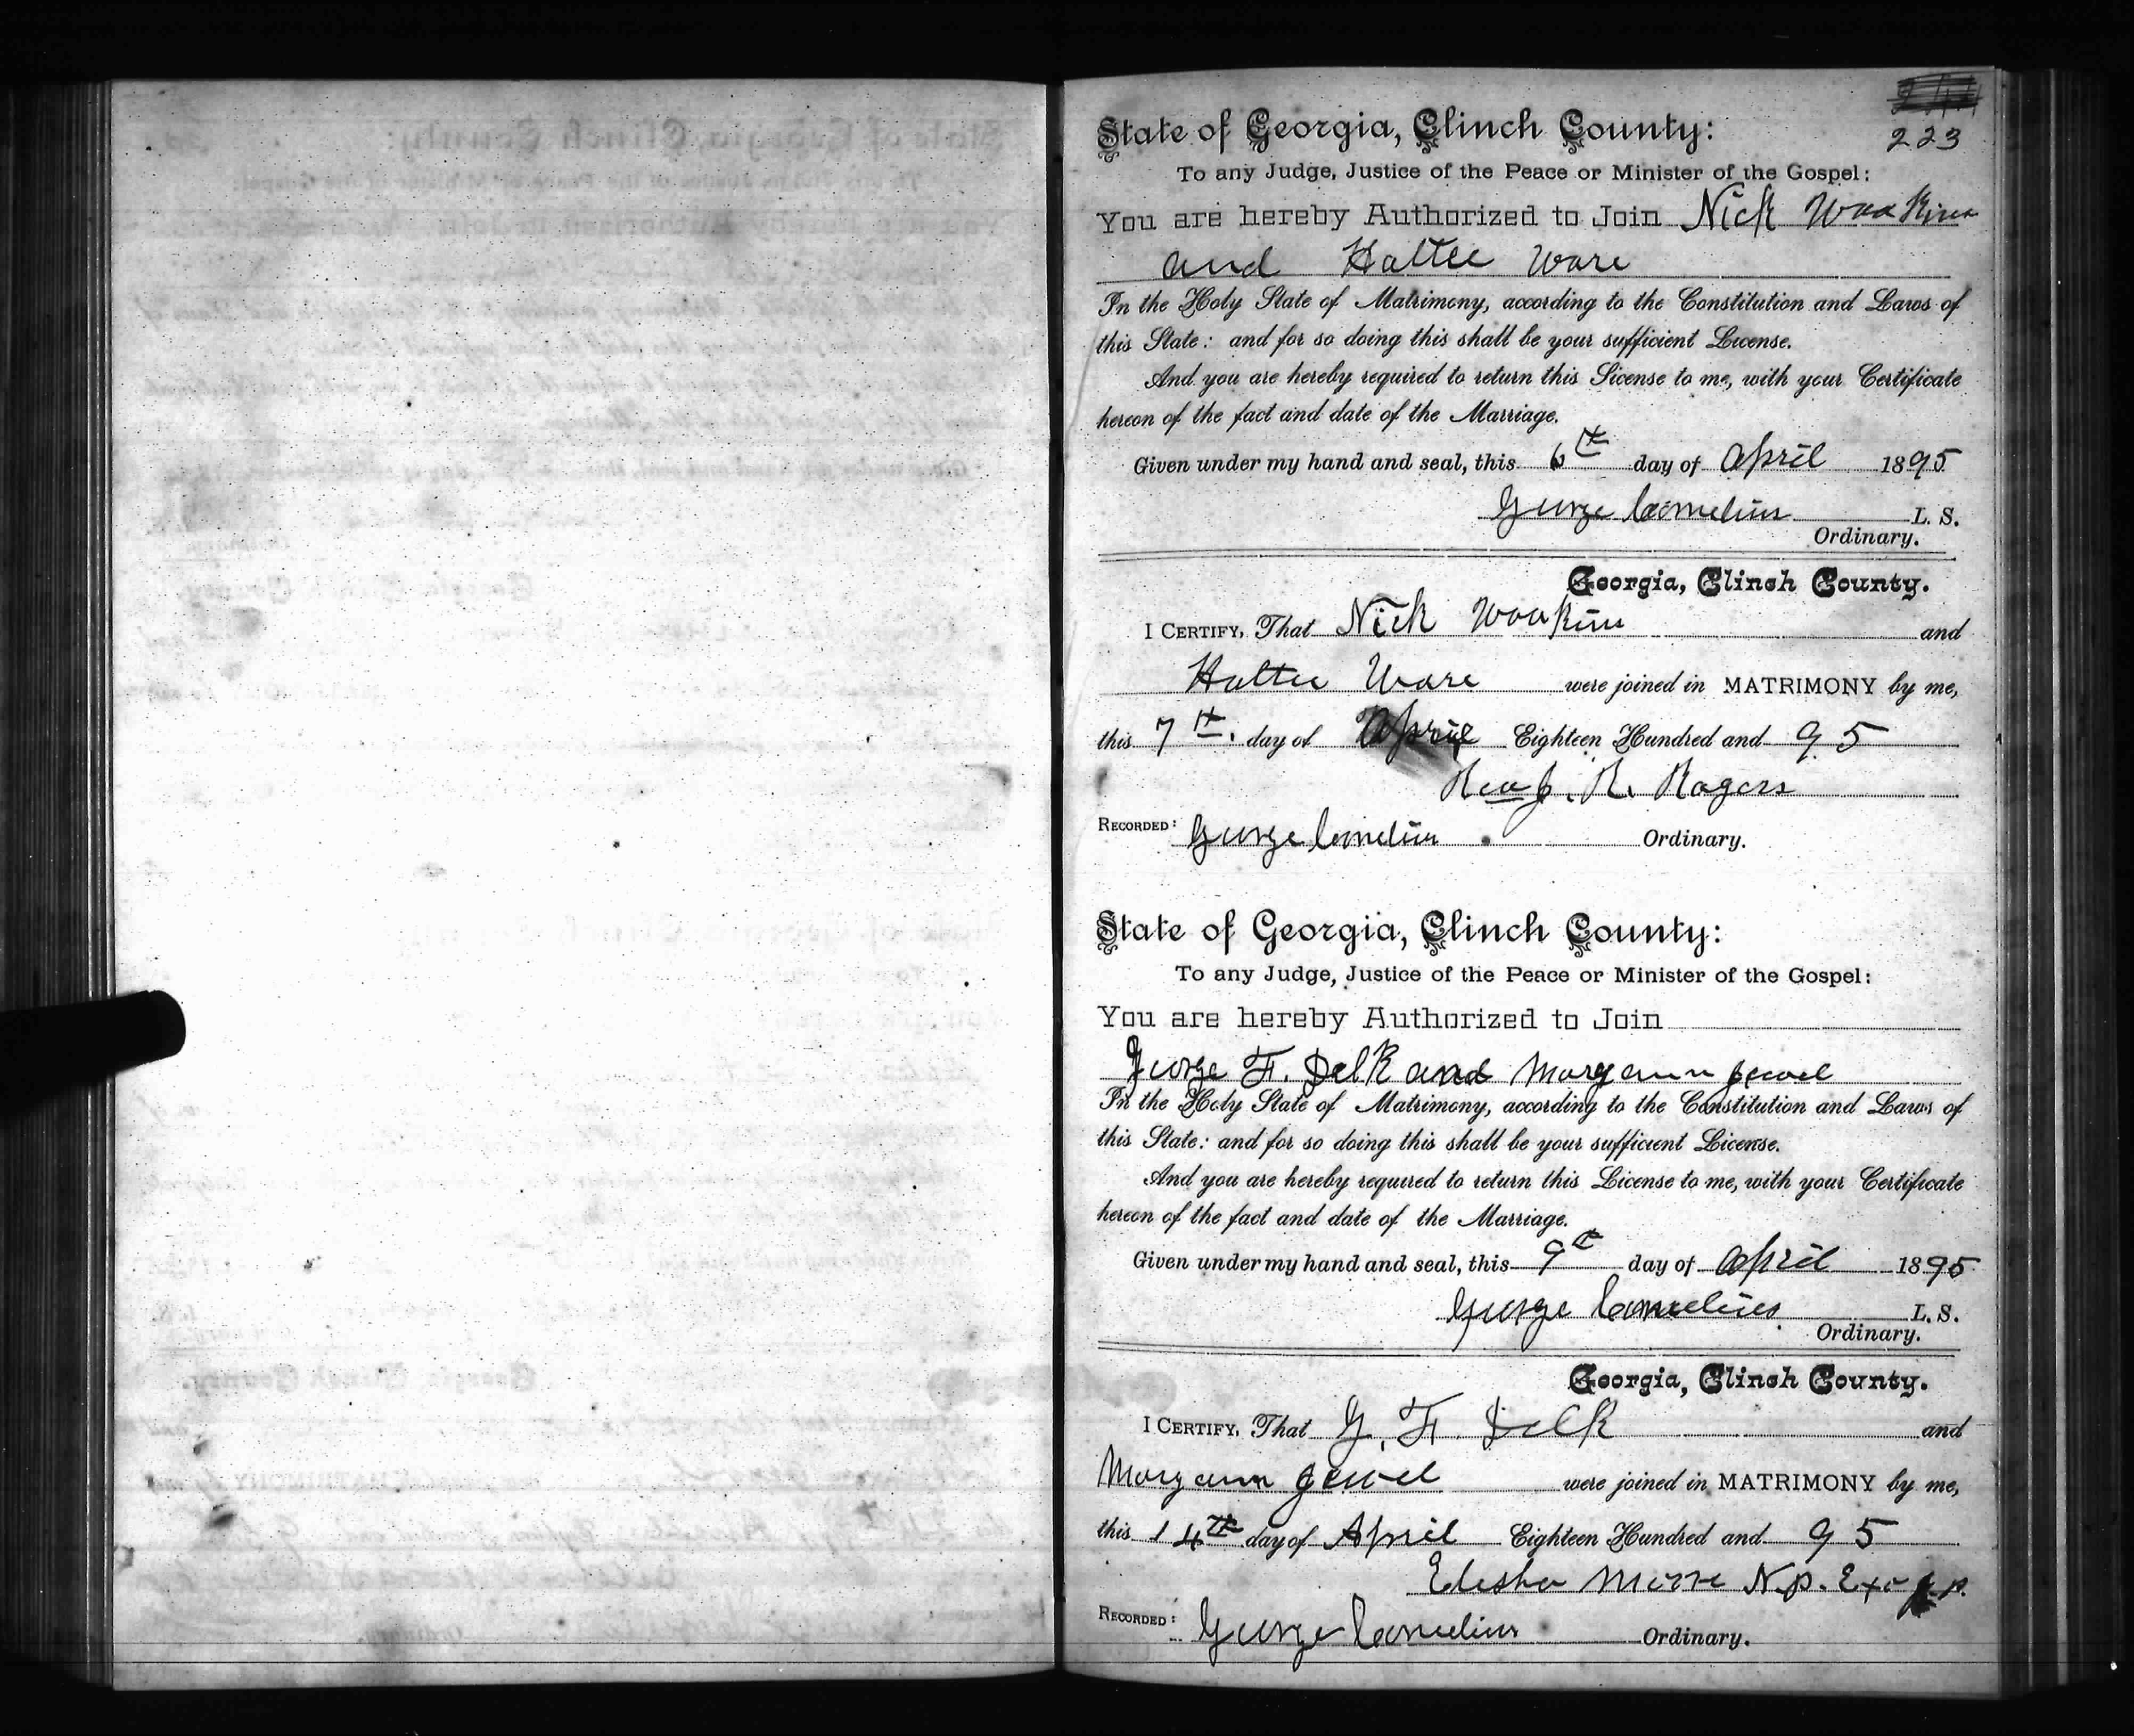 223
State of Georgia, Clinch County:
To any Judge, Justice of the Peace or Minister of the Gospel:
You are hereby Authorized to Join Nick
and Hattie Ware
In the Holy State of Matrimony, according to the Constitution and Laws of
this State: and for so doing this shall be your sufficient License.
And you are hereby required to return this License to me, with your Certificate
hereon of the fact and date of the Marriage.
Given under my hand and seal, this 6th day of April 1895
George Cornelius L. S.
Ordinary.
Georgia, Clinch County.
I CERTIFY, That Nick and
Hattie Ware were joined in MATRIMONY by me,
this 7th. day of April Eighteen Hundred and 95
Rev J. R. Rogers
RECORDED: George Cornelius Ordinary.
State of Georgia, Clinch County:
To any Judge, Justice of the Peace or Minister of the Gospel:
You are hereby Authorized to Join
George F. Delk and Mary ann Jewel
In the Holy State of Matrimony, according to the Constitution and Laws of
this State: and for so doing this shall be your sufficient License.
And you are hereby required to return this License to me, with your Certificate
hereon of the fact and date of the Marriage.
Given under my hand and seal, this 9th day of April 1895
George Cornelius L. S.
Ordinary.
Georgia, Clinch County.
I CERTIFY, That G. F. Delk and
Mary ann Jewel were joined in MATRIMONY by me,
this 14th day of April Eighteen Hundred and 95
N.P. Exo
RECORDED: George Cornelius Ordinary.